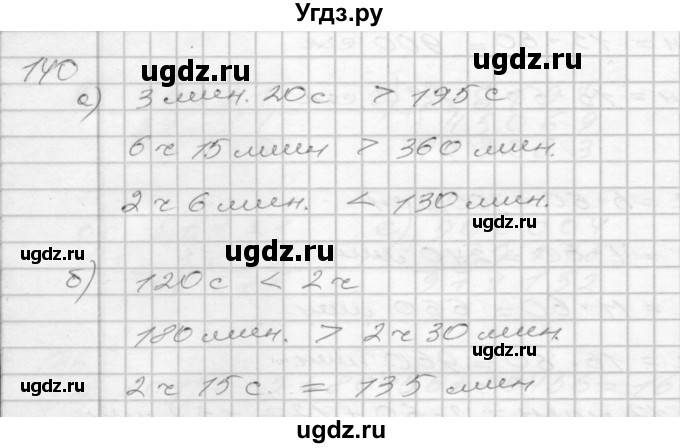 Угдз.ру
140
ugdz.ru ugdz.ru
а) 3 мин. 20 с > 195 с
6 ч 15 мин > 360 мин.
2 ч 6 мин. < 130 мин.
ugdz.ru
ugdz.ru ugdz.ru
б) 120 с < 2 ч
180 мин. > 2 ч 30 мин.
ugdz.ru
ugdz.ru
2 ч 15 с. = 135 мин
ugdz.ru ugdz.ru